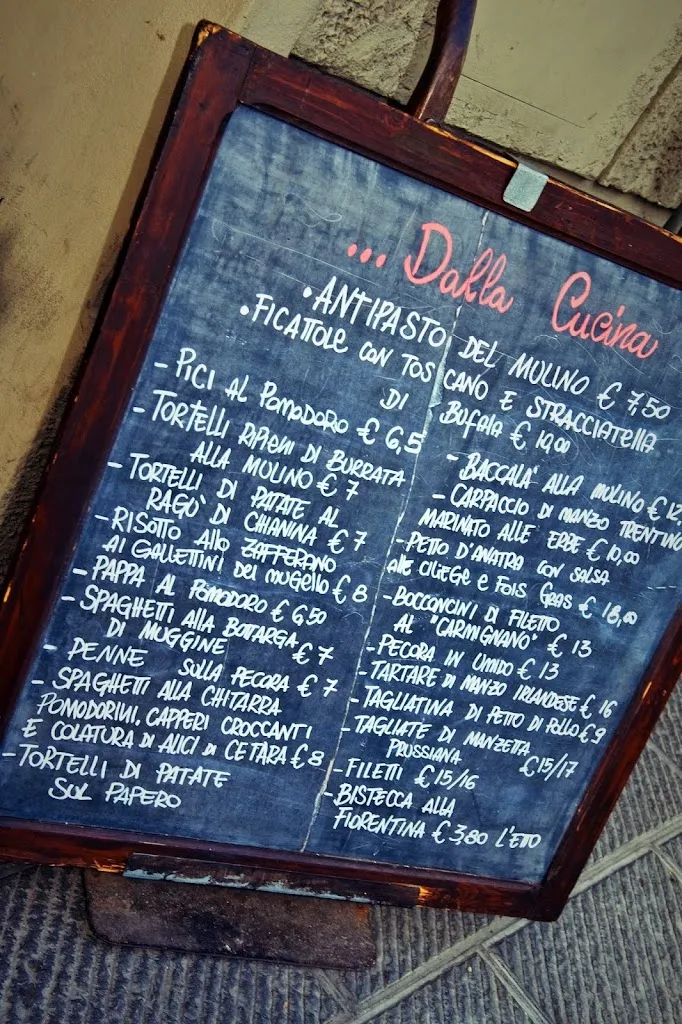 ... Dalla Cucina
• ANTIPASTO DEL MULINO € 7,50
• FICATTOLE CON TOSCANO E STRACCIATELLA
DI BUFALA € 10,00
- PICI AL POMODORO € 6,5
- TORTELLI RIPIENI DI BURRATA
ALLA MULINO € 7
- TORTELLI DI PATATE AL
RAGÙ DI CHIANINA € 7
- RISOTTO ALLO ZAFFERANO
AI GALLETTINI DEL MUGELLO € 8
- PAPPA AL POMODORO € 6,50
- SPAGHETTI ALLA BOTTARGA
DI MUGGINE € 7
- PENNE SULLA PECORA € 7
- SPAGHETTI ALLA CHITARRA
POMODORINI, CAPPERI CROCCANTI
E COLATURA DI ALICI DI CETARA € 8
- TORTELLI DI PATATE
SUL PAPERO
- BACCALA' ALLA MULINO € 12,
- CARPACCIO DI MANZO TRENTINO
MARINATO ALLE ERBE € 10,00
- PETTO D'ANATRA CON SALSA
ALLE CILIEGE E FOIS GRAS € 18,00
- BOCCONCINI DI FILETTO
AL "CARMIGNANO" € 13
- PECORA IN UMIDO € 13
- TARTARE DI MANZO IRLANDESE € 16
- TAGLIATINA DI PETTO DI POLLO € 9
- TAGLIATE DI MANZETTA
PRUSSIANA € 15/17
- FILETTI € 15/16
- BISTECCA ALLA
FIORENTINA € 3,80 L'ETTO